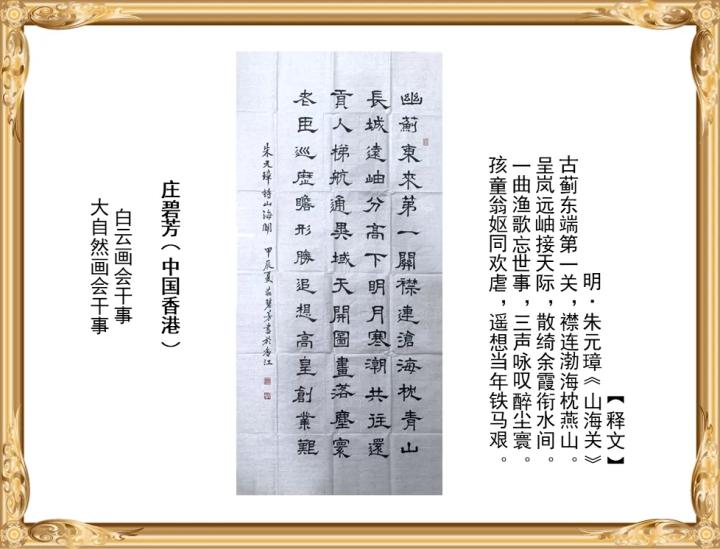 【释文】
明·朱元璋《山海关》
古蓟东端第一关，襟连渤海枕燕山。
呈岚远岫接天际，散绮余霞衔水间。
一曲渔歌忘世事，三声咏叹醉尘寰。
孩童翁妪同欢虐，遥想当年铁马艰。
幽薊東來第一關襟連滄海枕青山
長城遠岫分高下明月寒潮共往還
貢人梯航通異域天開圖畫落塵寰
老臣巡歷瞻形勝追想高皇創業艱
朱元璋詩山海關 甲辰夏莊碧芳書於香江
庄碧芳（中国香港）
白云画会干事
大自然画会干事